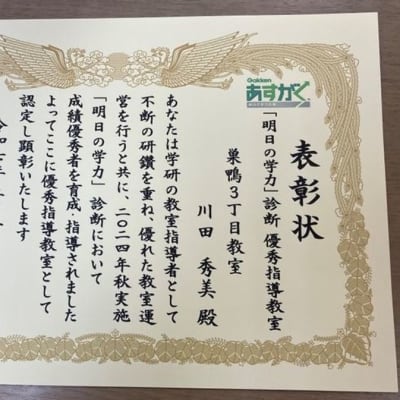 Gakken
あすがく
表彰状
「明日の学力」診断 優秀指導教室
巣鴨3丁目教室
川田 秀美 殿
あなたは学研の教室指導者として
不断の研鑽を重ね、優れた教室運
営を行うと共に、二〇二四年秋実施
「明日の学力」診断において
成績優秀者を育成・指導されました
よってここに優秀指導教室として
認定し顕彰いたします